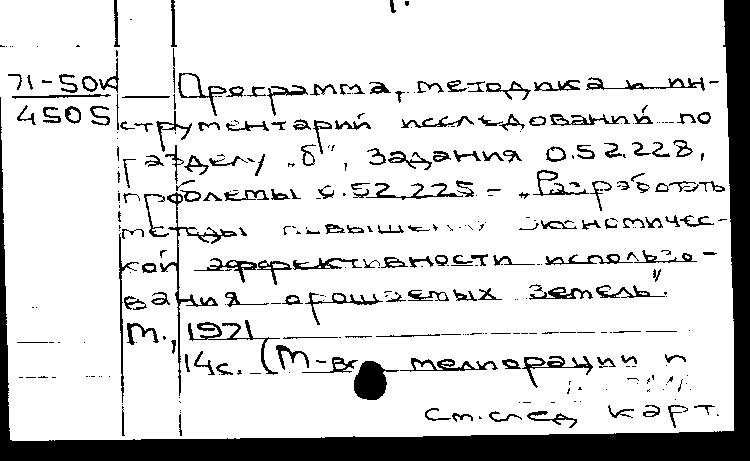 71-50К Программа, методика и ин-
4505 струментарий исследований по
разделу „б", задания 0.52.228,
проблемы 0.52.225 – „Разработать
методы повышения экономичес-
кой эффективности использо-
вания орошаемых земель".
М., 1971
14с. (М-во мелиорации и
См. след карт.